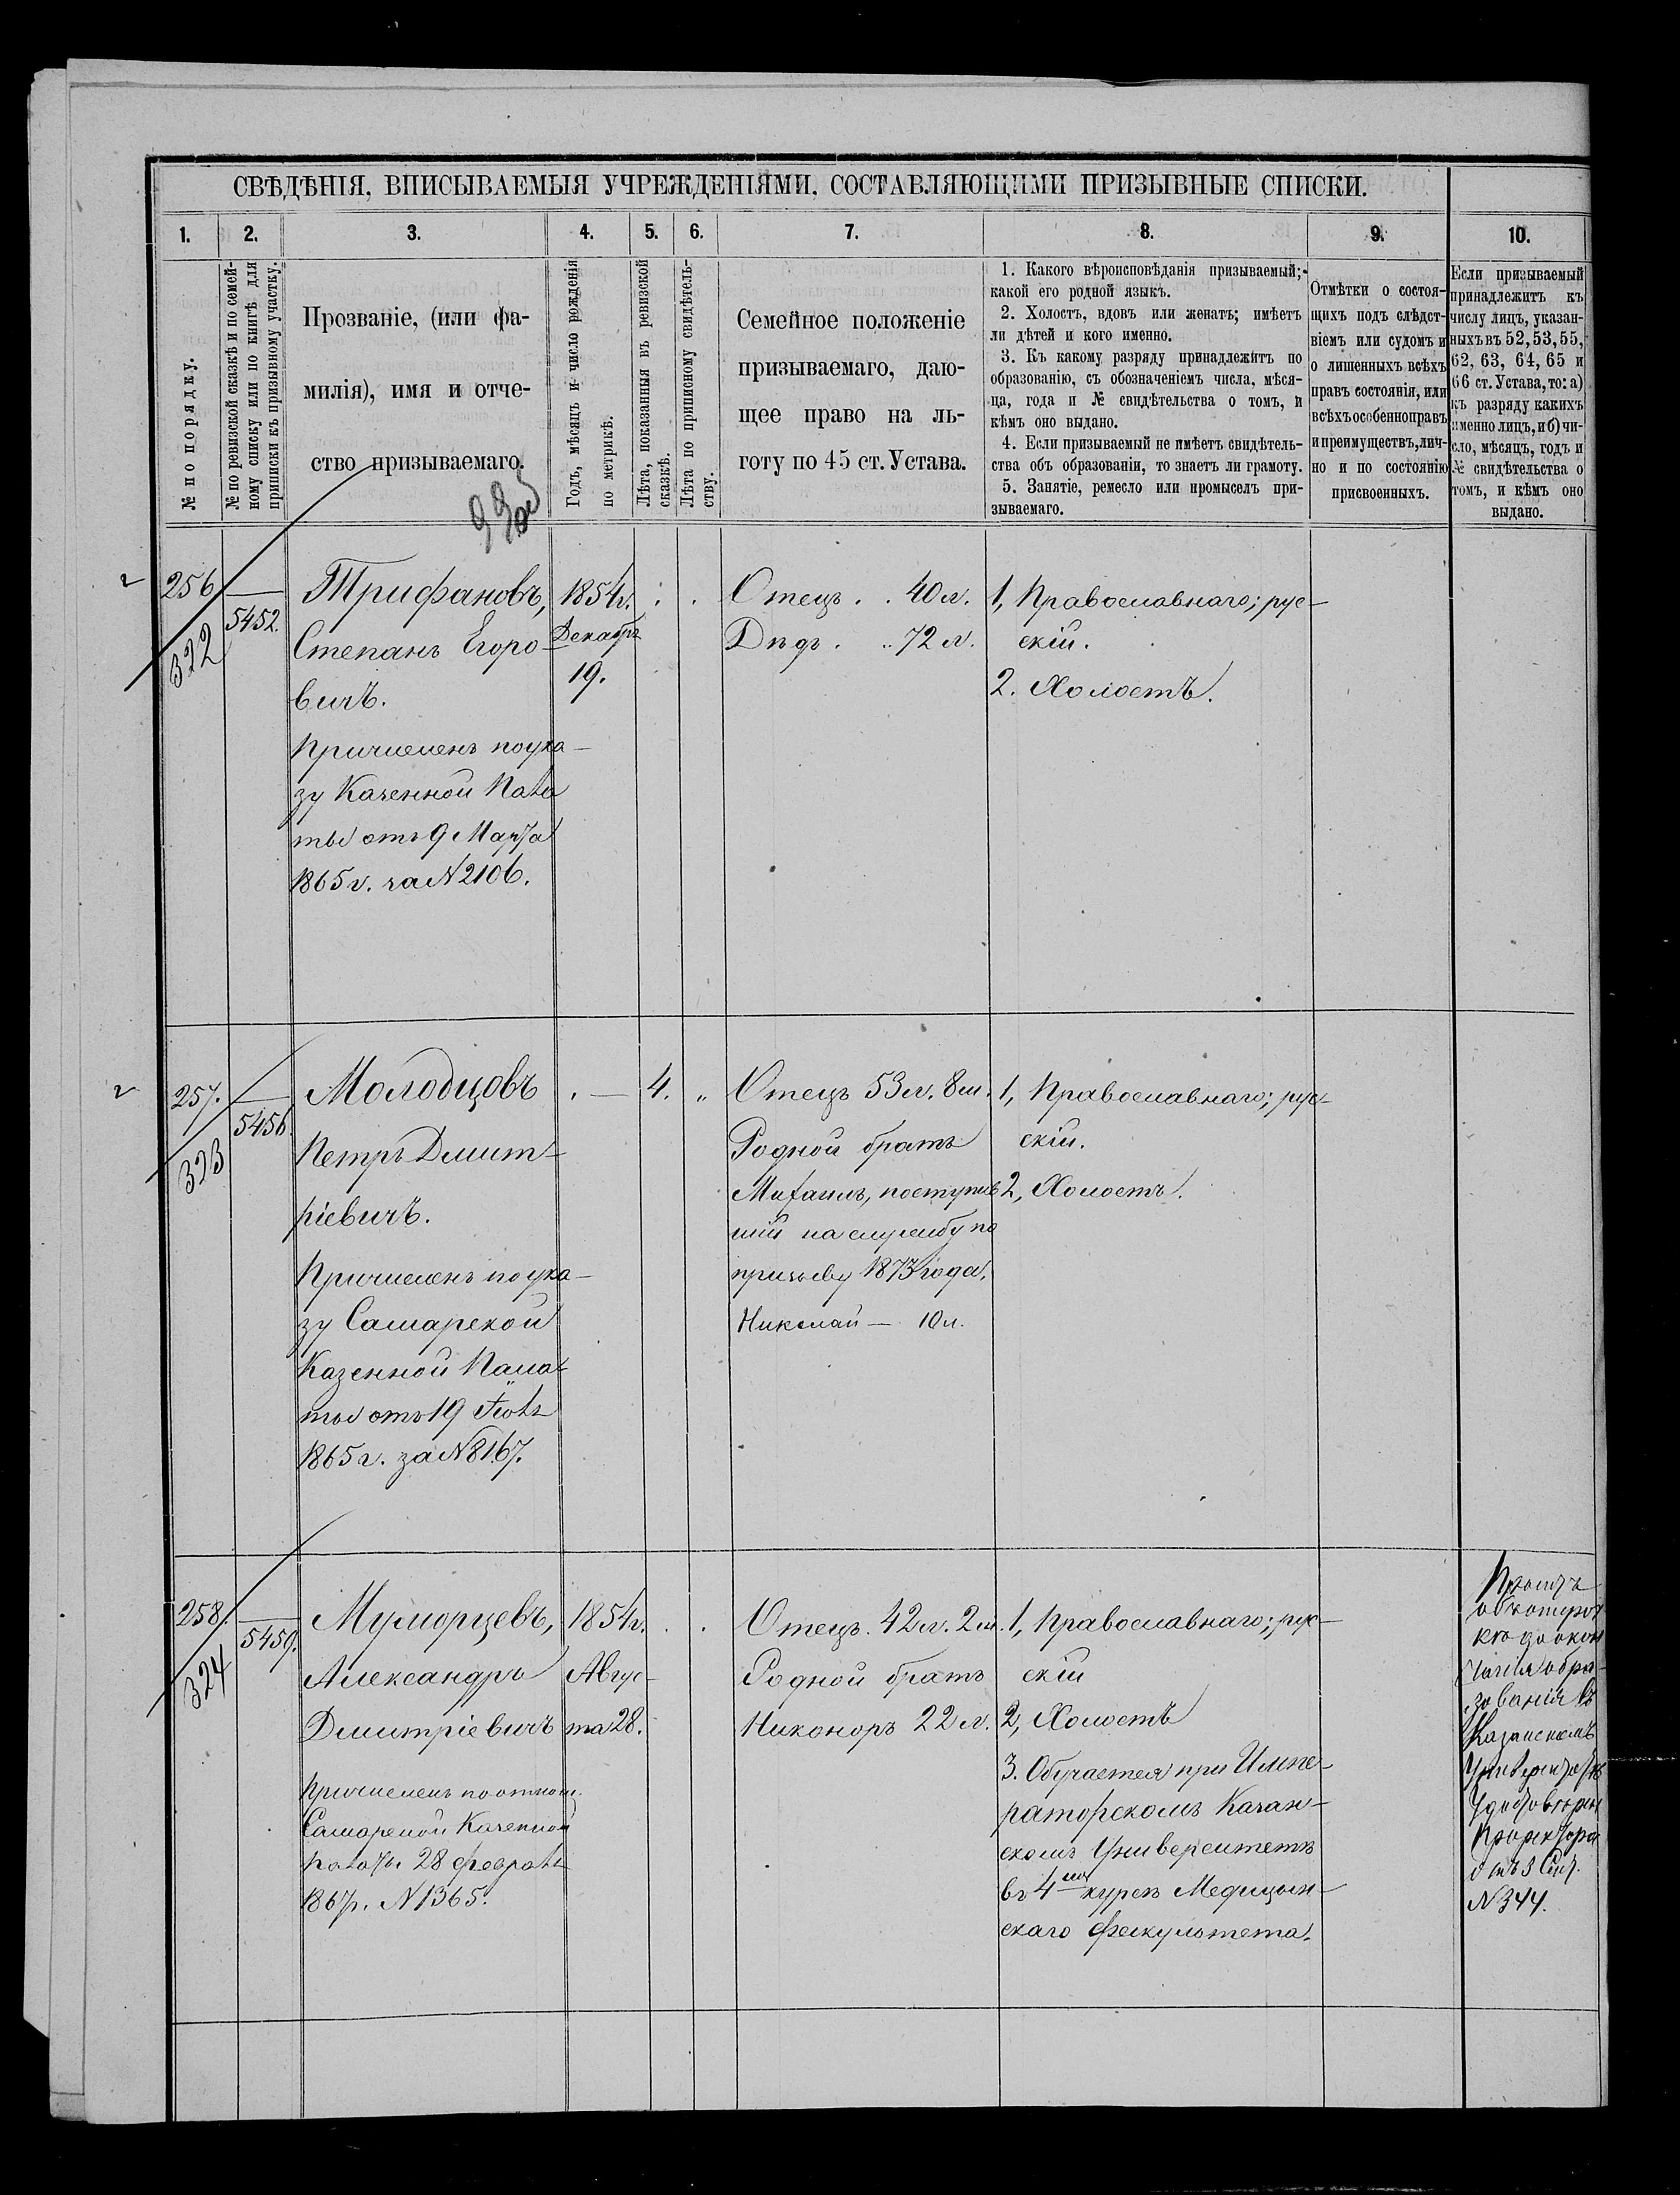 СВѢДѢНІЯ, ВПИСЫВАЕМЫЯ УЧРЕЖДЕНІЯМИ, СОСТАВЛЯЮЩИМИ ПРИЗЫВНЫЕ СПИСКИ.
1.
2.
3.
4.
5.
6.
7.
8.
9.
10.
№ по порядку.
№ по ревизской сказкѣ и по семей-
ному списку или по книгѣ для
приписки къ призывному участку.
Прозваніе, (или фа-
милія), имя и отче-
ство призываемаго.
Годъ, мѣсяцъ и число рожденія
по метрикѣ.
Лѣта, показанныя въ ревизской
сказкѣ.
Лѣта по приписному свидѣтель-
ству.
Семейное положеніе
призываемаго, даю-
щее право на ль-
готу по 45 ст. Устава.
1. Какого вѣроисповѣданія призываемый;
какой его родной языкъ.
2. Холостъ, вдовъ или женатъ; имѣетъ
ли дѣтей и кого именно.
3. Къ какому разряду принадлежитъ по
образованію, съ обозначеніемъ числа, мѣся-
ца, года и № свидѣтельства о томъ, и
кѣмъ оно выдано.
4. Если призываемый не имѣетъ свидѣтель-
ства объ образованіи, то знаетъ ли грамоту.
5. Занятіе, ремесло или промыселъ при-
зываемаго.
Отмѣтки о состоя-
щихъ подъ слѣдст-
віемъ или судомъ и
о лишенныхъ всѣхъ
правъ состоянія, или
всѣхъ особенно правъ
и преимуществъ, лич-
но и по состоянію
присвоенныхъ.
Если призываемый
принадлежитъ къ
числу лицъ, указан-
ныхъ въ 52, 53, 55,
62, 63, 64, 65 и
66 ст. Устава, то: а)
къ разряду какихъ
именно лицъ, и б) чи-
сло, мѣсяцъ, годъ и
№ свидѣтельства о
томъ, и кѣмъ оно
выдано.
256
322
5452.
Трифановъ,
Степанъ Егоро-
вичъ.
Причисленъ по ука-
зу Казенной Пала
ты отъ 9 Марта
1865 г. за N 2106.
1854 г.
Декабр
19.
Отецъ . . 40 л.
Дѣдъ . .. 72 л.
1, Православнаго; рус-
скій.
2. Холостъ.
257.
323
5456.
Молодцовъ
Петръ Дмит-
ріевичъ.
Причисленъ по ука-
зу Самарской
Казенной Пала-
ты отъ 19
1865 г. за N 8167.
4.
Отецъ 53 л. 8 м.
Родной братъ
Михаилъ, поступив
шій на службу по
призыву 1873 года.
Николай — 10 л.
1, Православнаго; рус-
скій.
2, Холостъ.
258.
324
5459.
Муморцевъ,
Александръ
Дмитріевичъ
Причисленъ по отнош.
Самарской Казенной
Палаты 28 Февраля
1867 г. N 1365.
1854 г.
Авгус-
та 28.
Отецъ. 42 л. 2 м.
Родной братъ
Никоноръ 22 л.
1, Православнаго; рус-
скій
2, Холостъ
3. Обучается при Импе-
раторскомъ Казан-
скомъ Университетѣ
въ 4мъ курсѣ Медицын-
скаго факультета.
зованія въ
Казанскомъ
N 344.